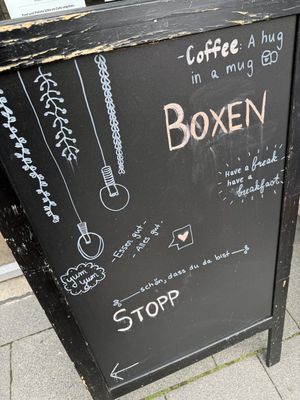 -Coffee: A hug
in a mug
BOXEN
Have a break
have a
breakfast
- Essen gut -
- Alles gut -
schön, dass du da bist
yum
yum
STOPP